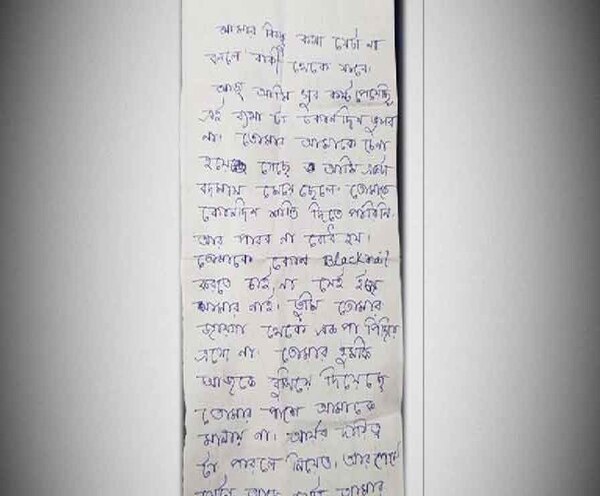 আমার কিছু কথা যেটা না
বললে বাকী থেকে যাবে।
আজ আমি খুব কষ্ট পেয়েছি
এই ব্যথা টা কোনদিন ভুলব
না। তোমার আমাকে চেনা
হয়ে গেছে আমি একটা
বদমায় ছেলে। তোমাকে
কোনদিন শান্তি দিতে পারিনি
আর পারব না বোধ হয়।
তোমাকে কোন Blackmail
করতে চাই না সেই ইচ্ছে
আমার নাই। তুমি তোমার
জায়গা থেকে এক পা পিছিয়ে
এসো না। তোমার হুমকি
আজকে বুঝিয়ে দিয়েছে
তোমার পাশে আমাকে
মানায় না। আর্থর দায়িত্ব
টা পারলে নিয়েও, আর
আমার